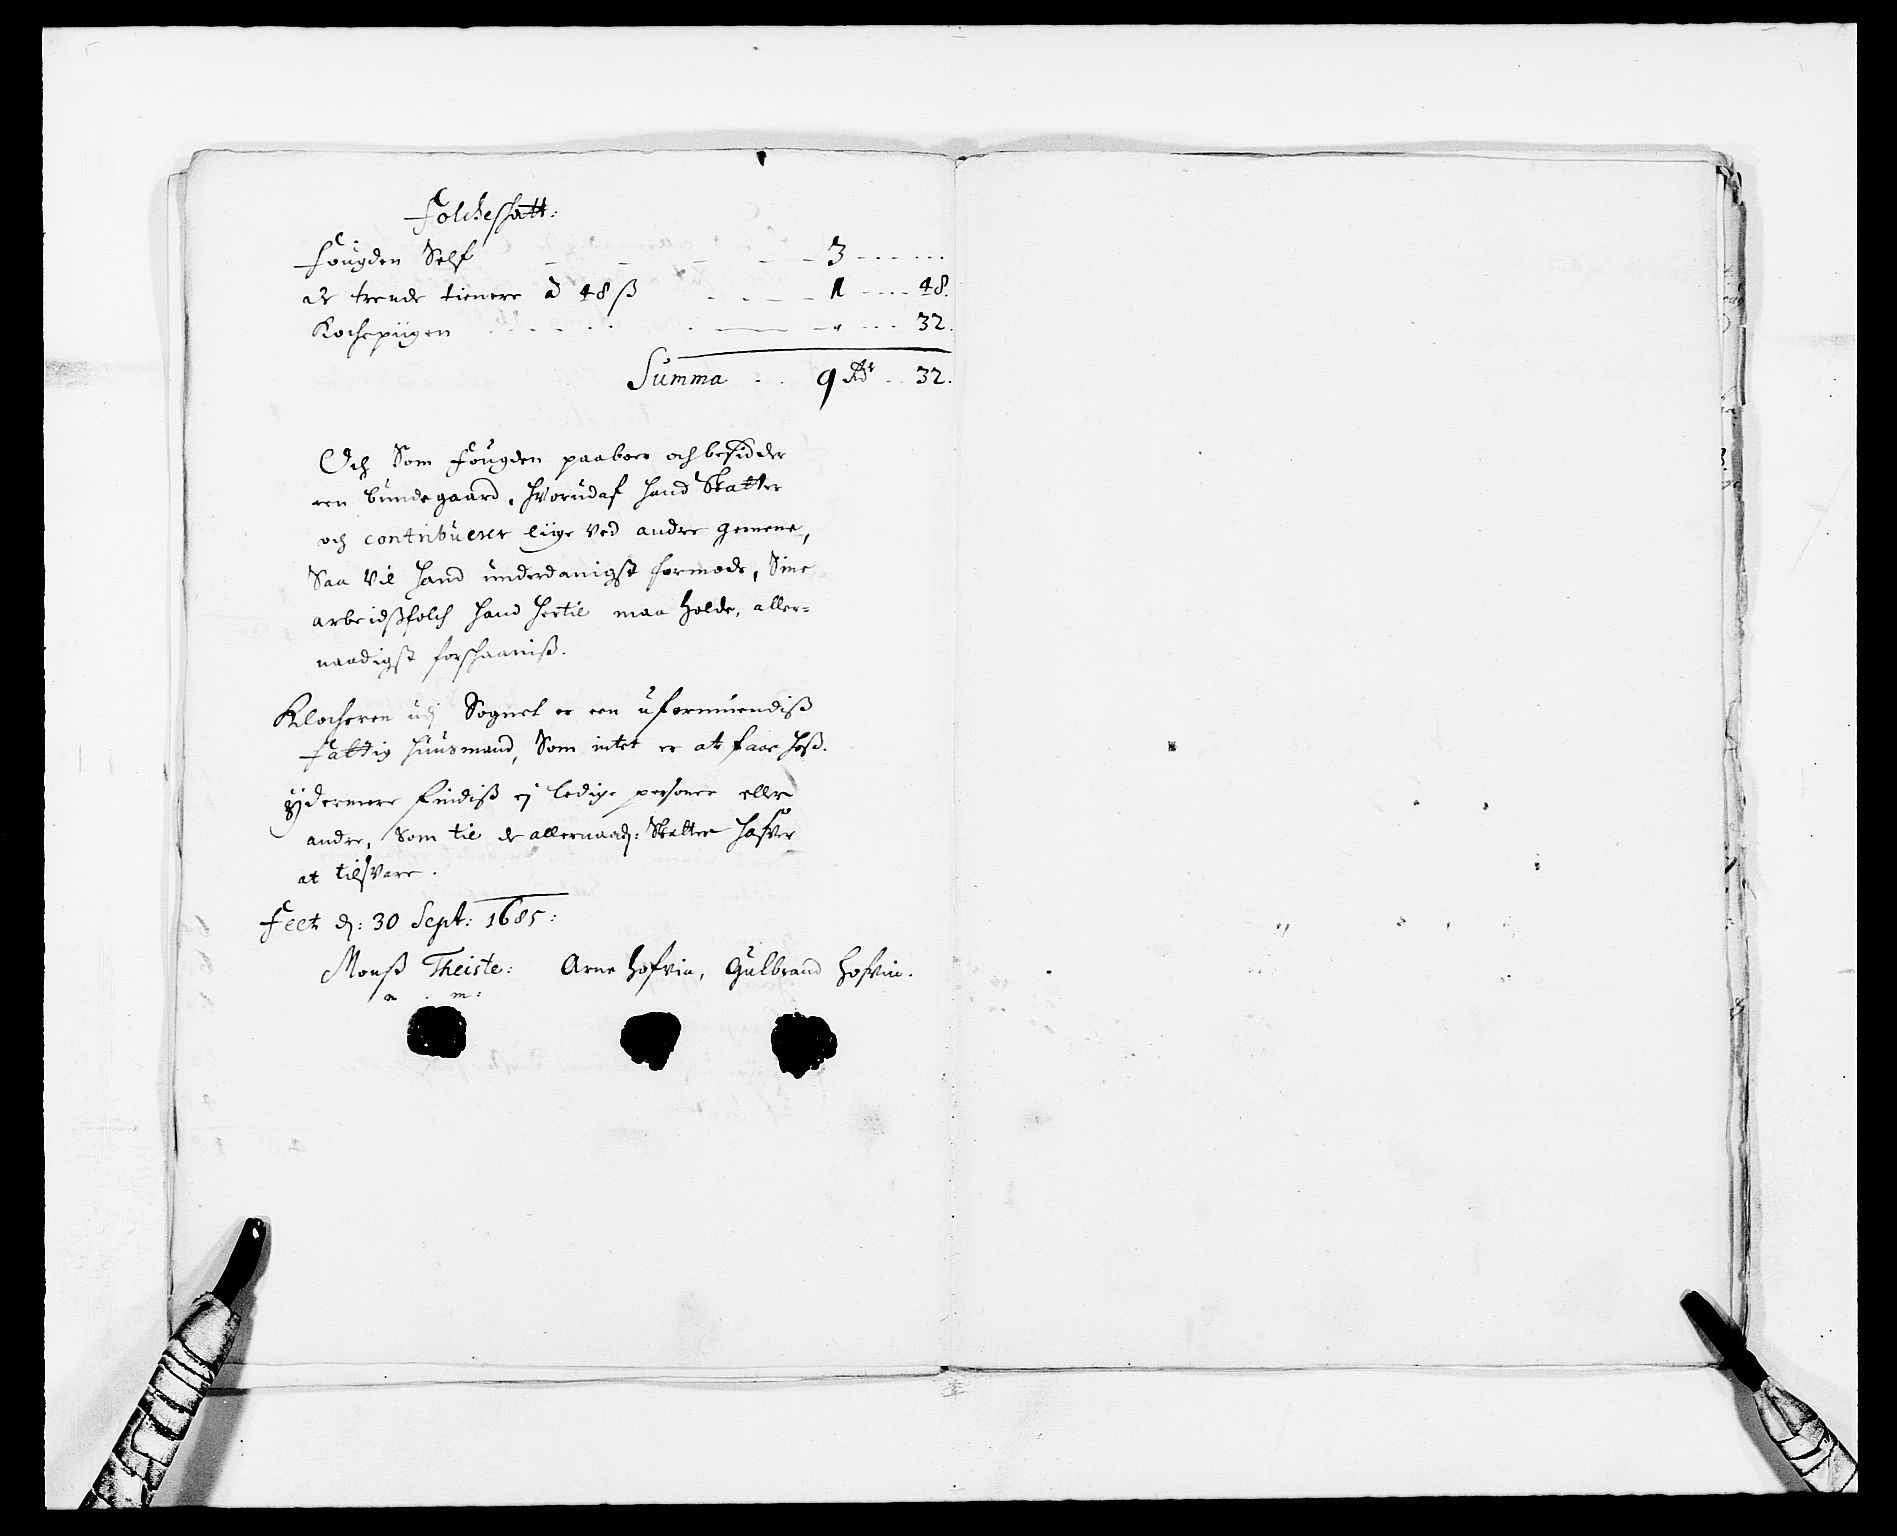 Folckeskatt:
Fougden Self - - - - - 3 - - - ...
de trende tienere à 48 ß . - - - 1 - - - 48.
Kochepiigen - - - - " - - - 32.
Summa - . 9 Rdr - . 32.
Och Som Fougden paaboer och besidder
een bundegaard, hvorudaf hand Skatter
och contribuerer liige ved andre gemene,
Saa vil hand underdanigst formode, Sine
arbeidßfolch hand hertil maa holde, aller=
naadigst forschaaniß.
Klocheren udj Sognet er een uformuendiß
fattig huusmand, Som intet er at faae hoß.
Ydermere findiß ej ledige personer eller
andre, Som til de allernaad: Skatter hafver
at tilsvare.
Feet d: 30 Sept: 1685:
Monß Theiste: Arne Hofvin, Gulbrand Hofvin.
m . m: